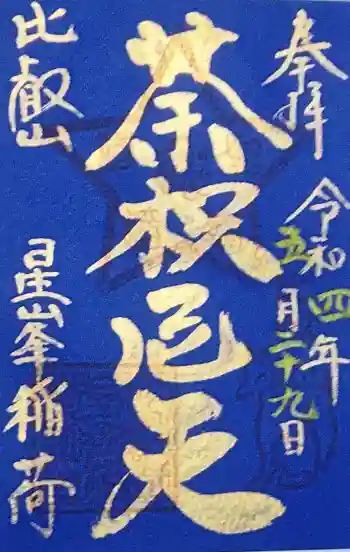 奉拝
令和四年
五月二十九日
荼枳尼天
比叡山
星峯稲荷